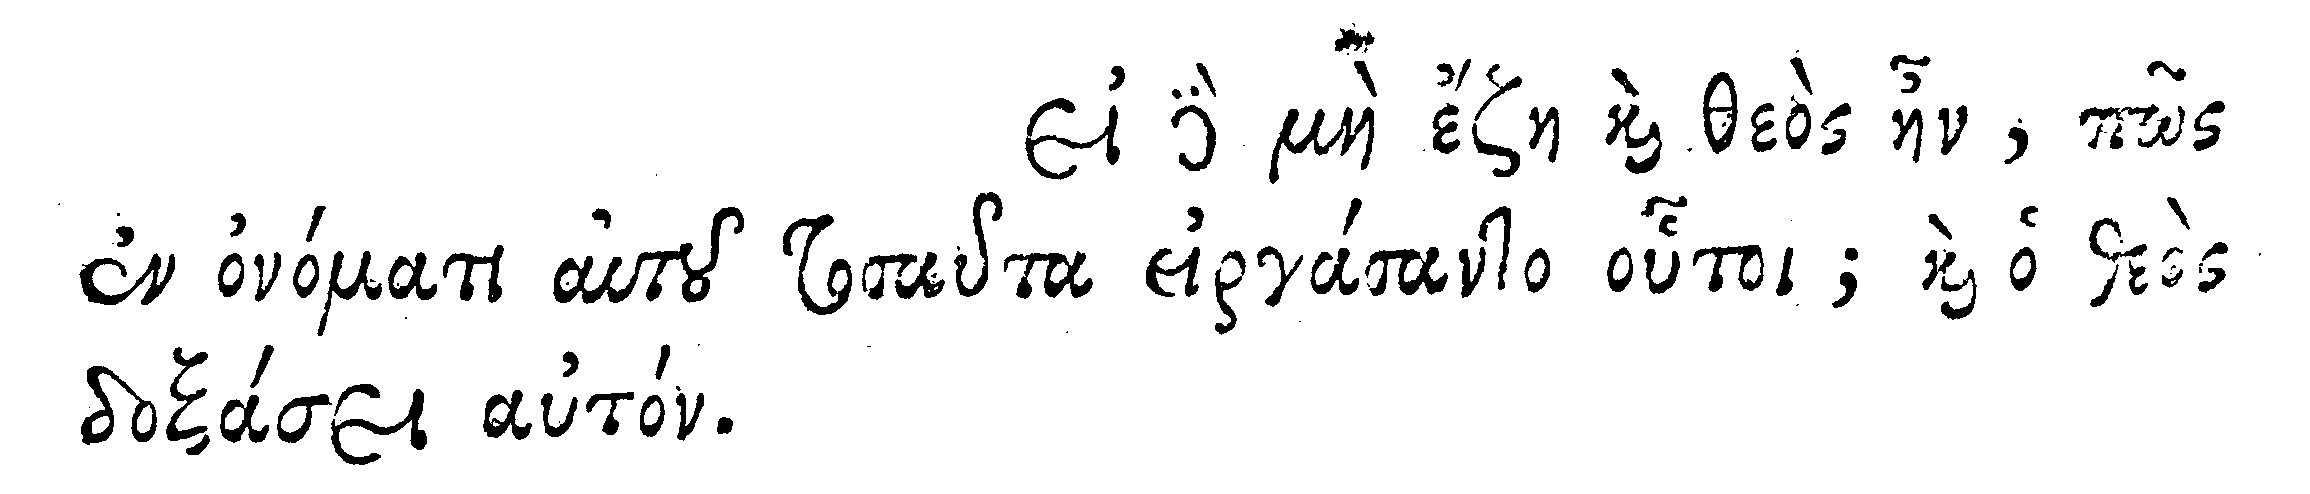 εἰ δὲ μὴ ἔζη καὶ θεὸς ἦν, πῶς
ἐν ὀνόματι αὐτοῦ τοσαῦτα εἰργάσαντο οὗτοι; καὶ ὁ θεὸς
δοξάσει αὐτόν.